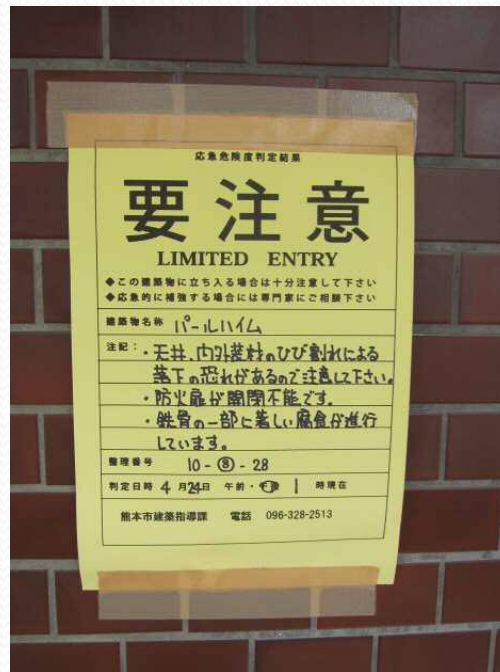 応急危険度判定結果
要注意
LIMITED ENTRY
◆この建築物に立ち入る場合は十分注意して下さい
◆応急的に補強する場合には専門家にご相談下さい
建築物名称 パールハイム
注記:・天井、内外装材のひび割れによる
落下の恐れがあるので注意して下さい。
・防火扉が開閉不能です。
・鉄骨の一部に著しい腐食が進行
しています。
整理番号 10-⑧-28
判定日時 4月24日 午前・午後 1 時現在
熊本市建築指導課 電話 096-328-2513